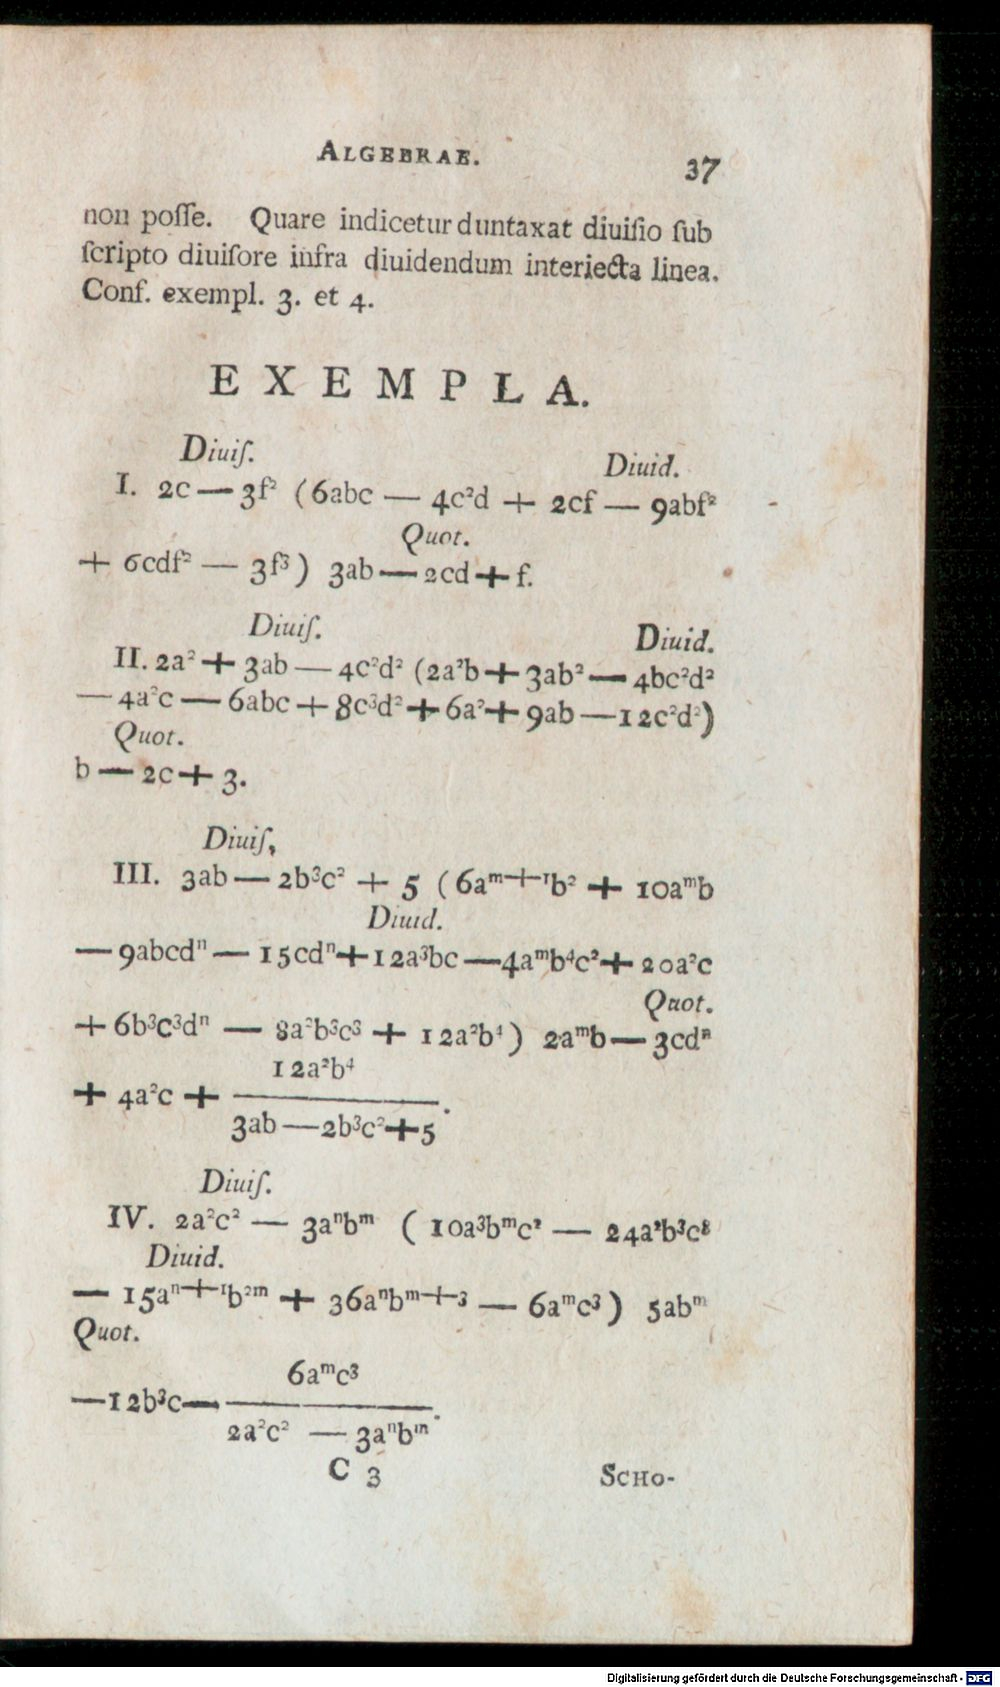 ALGEBRAE.
37
non poſſe. Quare indicetur duntaxat diuiſio ſub
ſcripto diuiſore infra diuidendum interiecta linea.
Conf. exempl. 3. et 4.
EXEMPLA.
Diuiſ. Diuid.
I. 2c — 3f² (6abc — 4c²d + 2cf — 9abf²
Quot.
+ 6cdf² — 3f³) 3ab — 2cd + f.
Diuiſ. Diuid.
II. 2a² + 3ab — 4c²d² (2a²b + 3ab² — 4bc²d²
— 4a²c — 6abc + 8c³d² + 6a² + 9ab — 12c²d²)
Quot.
b — 2c + 3.
Diuiſ,
III. 3ab — 2b³c² + 5 (6aᵐ⁺¹b² + 10aᵐb
Diuid.
— 9abcdⁿ — 15cdⁿ + 12a³bc — 4aᵐb⁴c² + 20a²c
Quot.
+ 6b³c³dⁿ — 8a²b³c³ + 12a²b⁴) 2aᵐb — 3cdⁿ
12a²b⁴
+ 4a²c +
3ab — 2b³c² + 5.
Diuiſ.
IV. 2a²c² — 3aⁿbᵐ (10a³bᵐc² — 24a²b³c³
Diuid.
— 15aⁿ⁺¹b²ᵐ + 36aⁿbᵐ⁺³ — 6aᵐc³) 5abᵐ
Quot.
6aᵐc³
— 12b³c —
2a²c² — 3aⁿbᵐ.
C 3
SCHO-
Digitalisierung gefördert durch die Deutsche Forschungsgemeinschaft - DFG